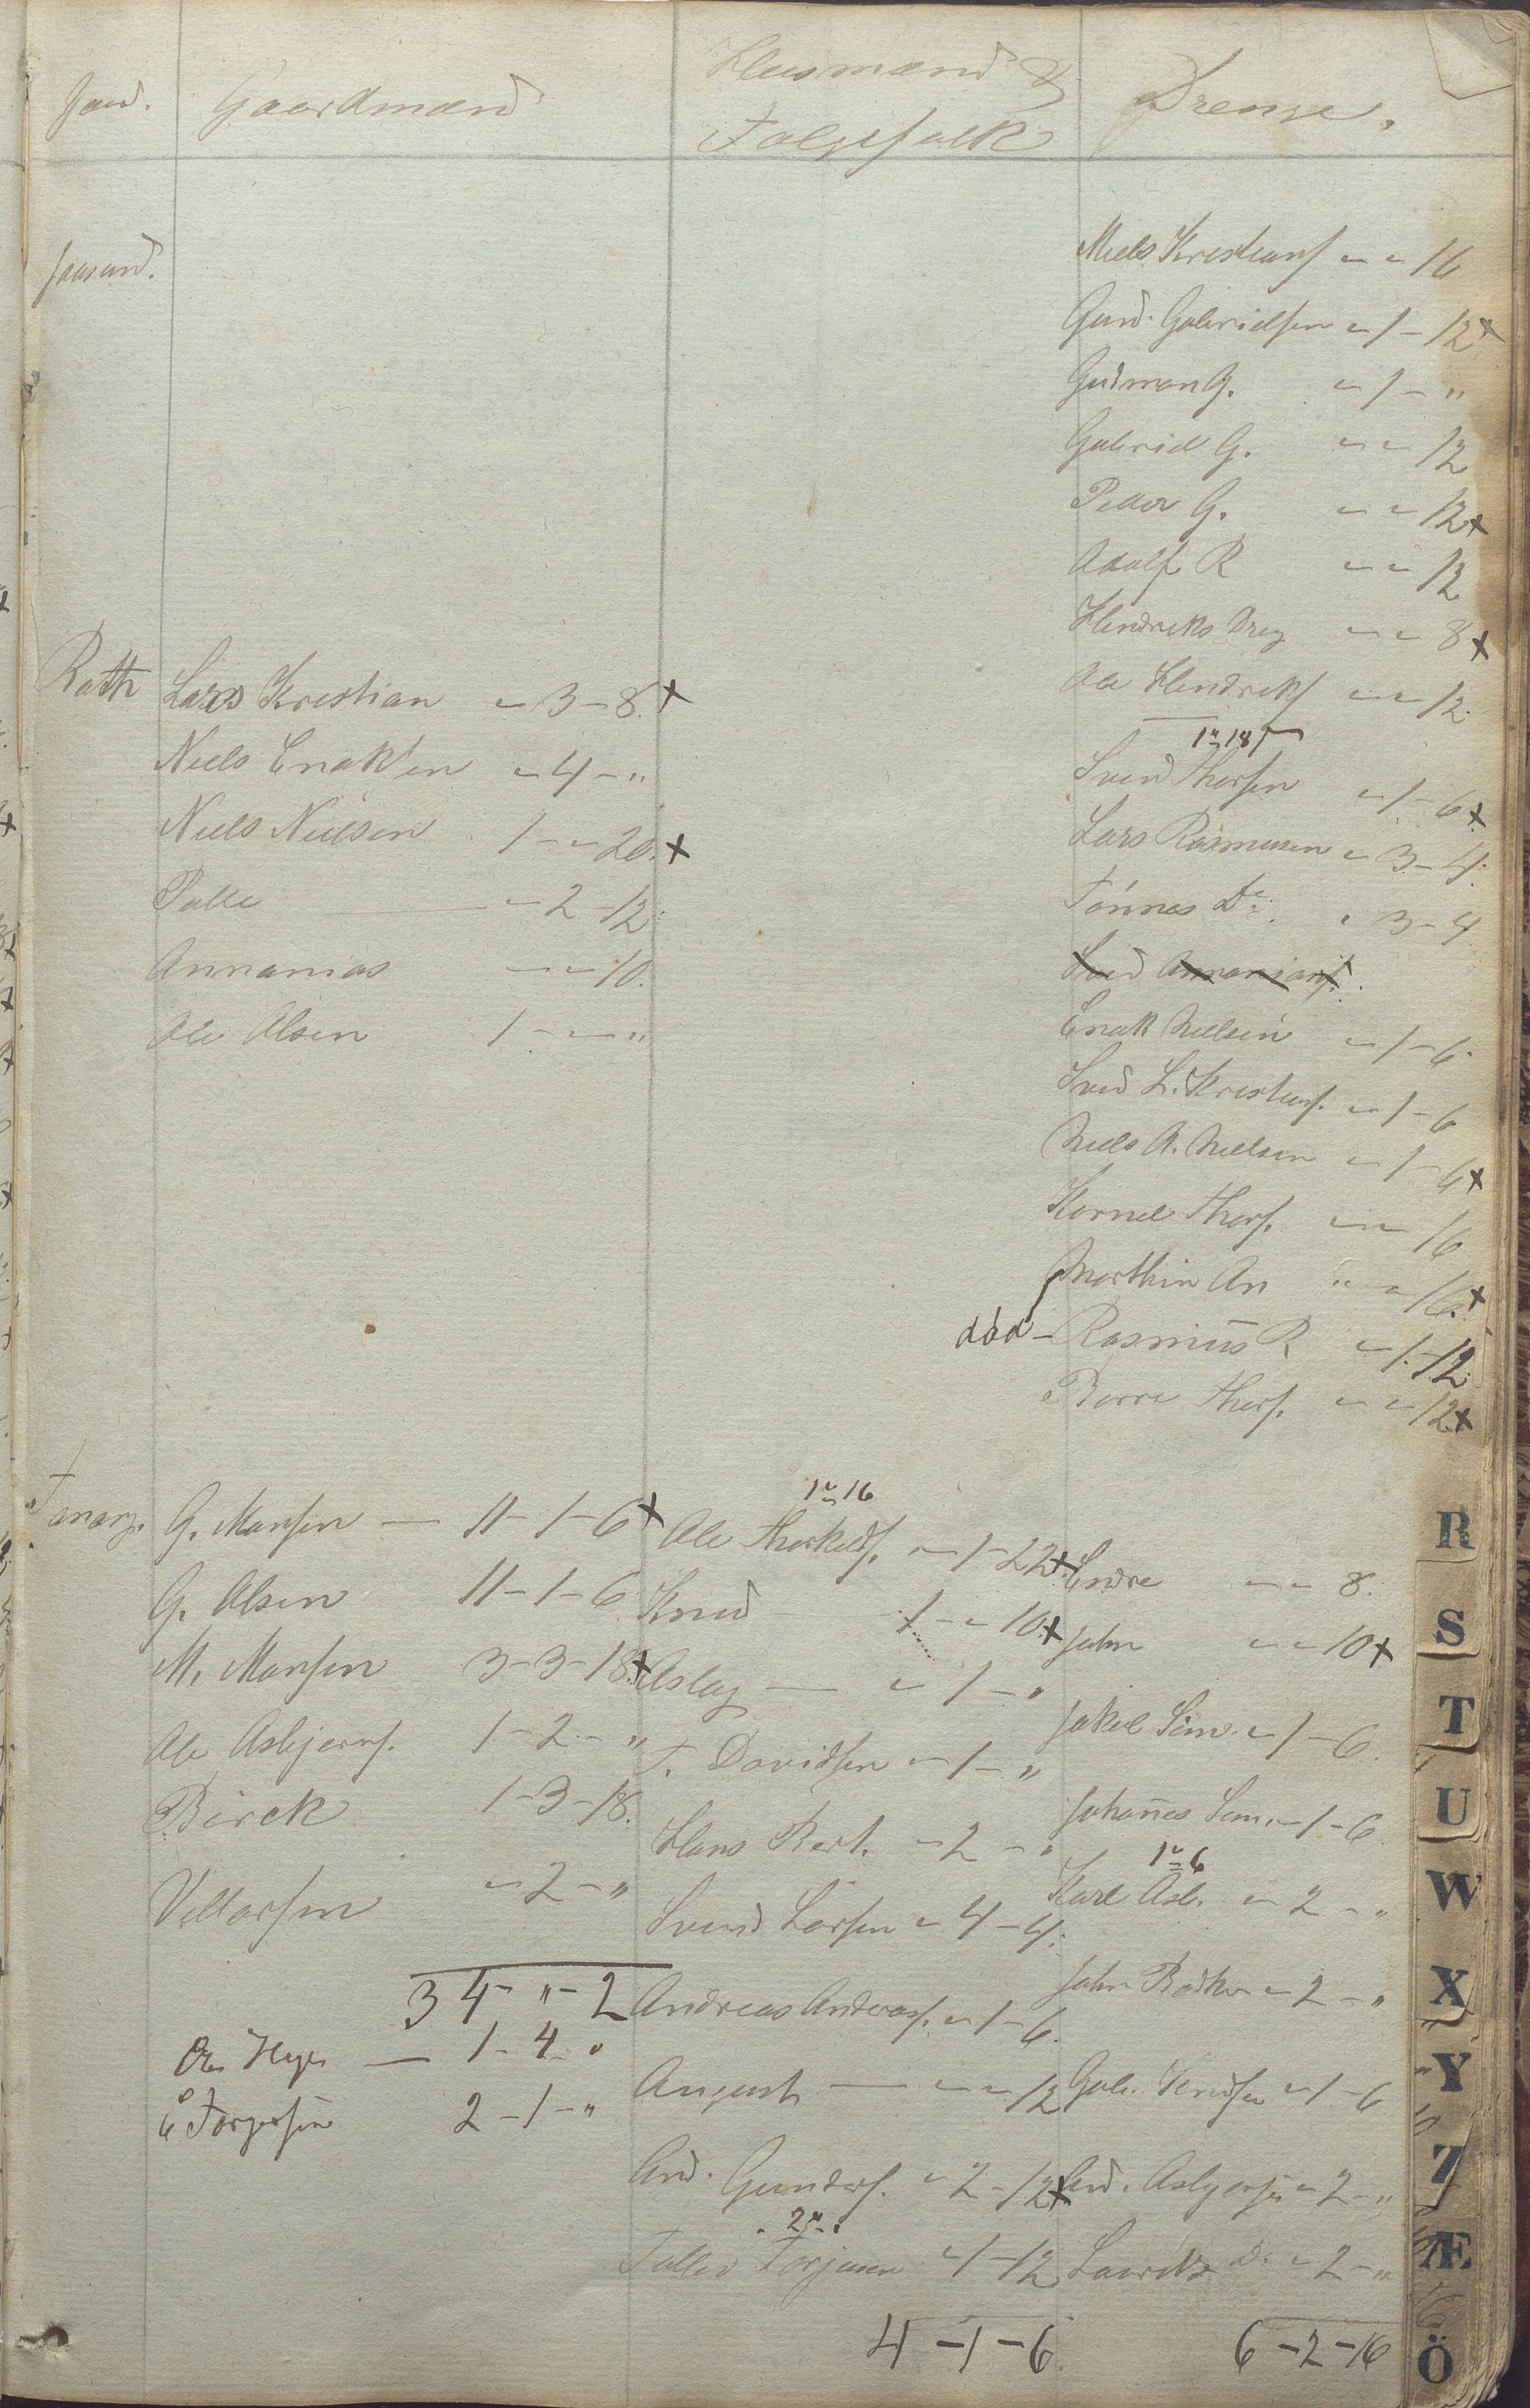 Gaardmænd
Husmænd &
Følgefolk
Drenge.
Niels Kristians „ - „ 16
Gund. Gabrielsen „ 1 - 12 x
Gudman G. „ 1 - „
Gabriel G. „ - „ 12
Peder G. „ - „ 12 x
Adolf R „ - „ 12
Hendriks Dreg „ - „ 8 x
Ole Hendriks „ - „ 12
Rath
Lars Kristian „ 3 - 8. x
Niels Enok'en „ 4 - „
Niels Nielsen 1 - „ 20. x
Palle „ 2 - 12.
Annanias „ - „ 10.
Ole Olsen 1 - „ - „
1 „ 18
Svend Thorsen „ 1 - 6 x
Lars Rasmusen „ 3 - 4.
Tönnes Do. „ 3 - 4
Svend Annanians.
Enok Nielsen „ 1 - 6
Svend L. Kristians. „ 1 - 6
Niels A. Nielsen „ 1 - 6 x
Kornel Thors. „ - „ 16
Morthin An „ - „ 16. x
död - Rasmus R „ 1 - 12
Borre Thors. „ - „ 12 x
Tanang.
G. Monsen — 11 - 1 - 6 x
G. Olsen 11 - 1 - 6
M. Monsen 3 - 3 - 18. x
Ole Asbjørns. 1 - 2 - „
Birck 1 - 3 - 18.
Vellarsen „ 2 - „
34 - „ - 2
1 - 4 - „
Torgersen 2 - 1 - „
1 „ 16
Ole Thorkelds. „ 1 - 22 x
Knud 1 - „ 10. x
Aslag — „ 1 - „
T. Davidsen „ 1 - „
Hans Bert. „ 2 - „
Svend Larsen „ 4 - 4.
Andreas Andreas. „ 1 - 6.
August — „ - „ 12
And. Gunders. „ 2 - 12 x
„ 2 „ „
Tallev Torjusen „ 1 - 12
4 - 1 - 6.
Endre „ - „ 8.
John „ - „ 10 x
Jakob Sim. „ 1 - 6.
Johannes Sim. „ 1 - 6
1 „ 6
Karl Asb. „ 2 - „
John Bødker „ 2 - „
Gab. Knudsen „ 1 - 6
And. Asbjørnsen „ 2 - „
Lauritz Do. „ 2 - „
6 - 2 - 16
R
S
T
U
W
X
Y
Z
Æ
Ö